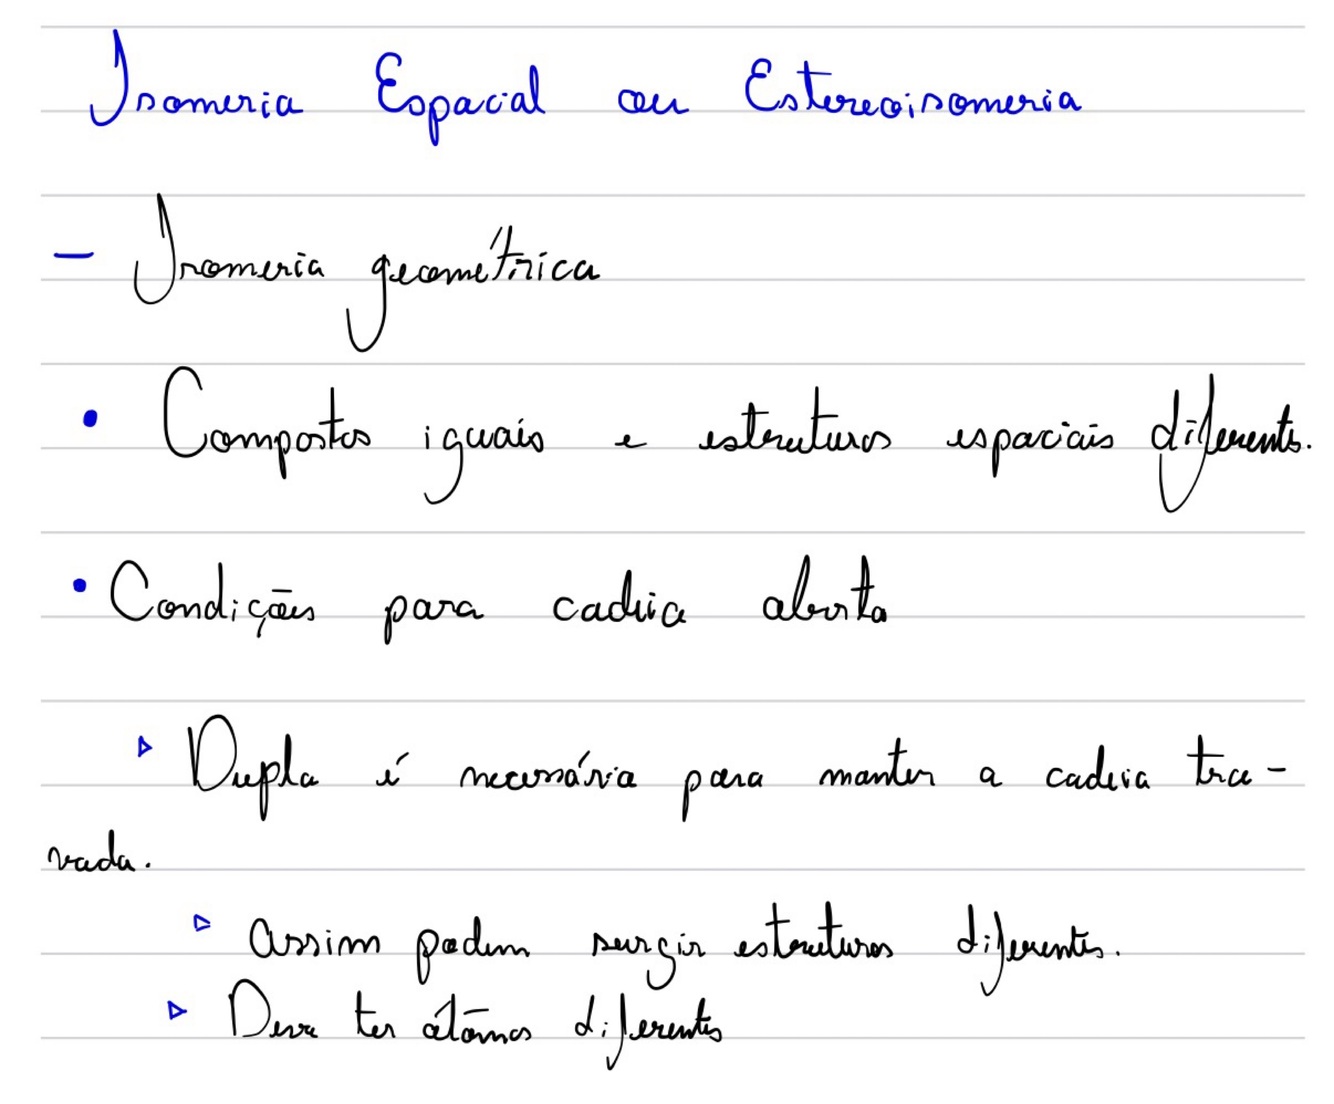 Isomeria Espacial ou Estereoisomeria
– Isomeria geométrica
• Compostos iguais e estruturas espaciais diferentes.
• Condições para cadeia aberta
▹ Dupla é necessária para manter a cadeia tra-
vada.
▹ Assim podem surgir estruturas diferentes.
▹ Deve ter átomos diferentes